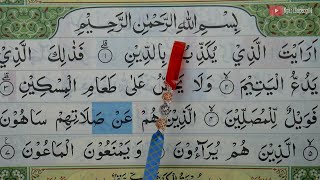 بِسْمِ اللهِ الرَّحْمٰنِ الرَّحِيْمِ
اَرَاَيْتَ الَّذِيْ يُكَذِّبُ بِالدِّيْنِ ۝١ فَذٰلِكَ الَّذِيْ
يَدُعُّ الْيَتِيْمَ ۝٢ وَلَا عَلٰى طَعَامِ الْمِسْكِيْنِ ۝٣
فَوَيْلٌ لِّلْمُصَلِّيْنَ ۝٤ الَّذِيْنَ هُمْ عَنْ صَلَاتِهِمْ سَاهُوْنَ
۝٥ الَّذِيْنَ هُمْ يُرَآءُوْنَ ۝٦ وَيَمْنَعُوْنَ الْمَاعُوْنَ ۝٧